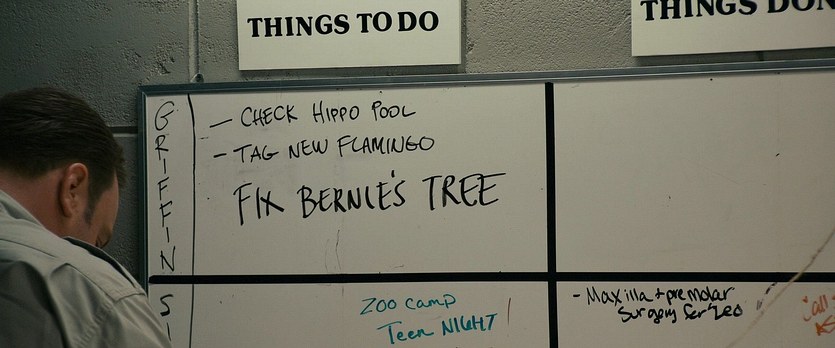 THINGS TO DO
THINGS DON
GRIFFIN
- CHECK HIPPO POOL
- TAG NEW FLAMINGO
FIX BERNIE'S TREE
S
ZOO CAMP
Teen NIGHT
- Maxilla + premolar
Surgery for Leo